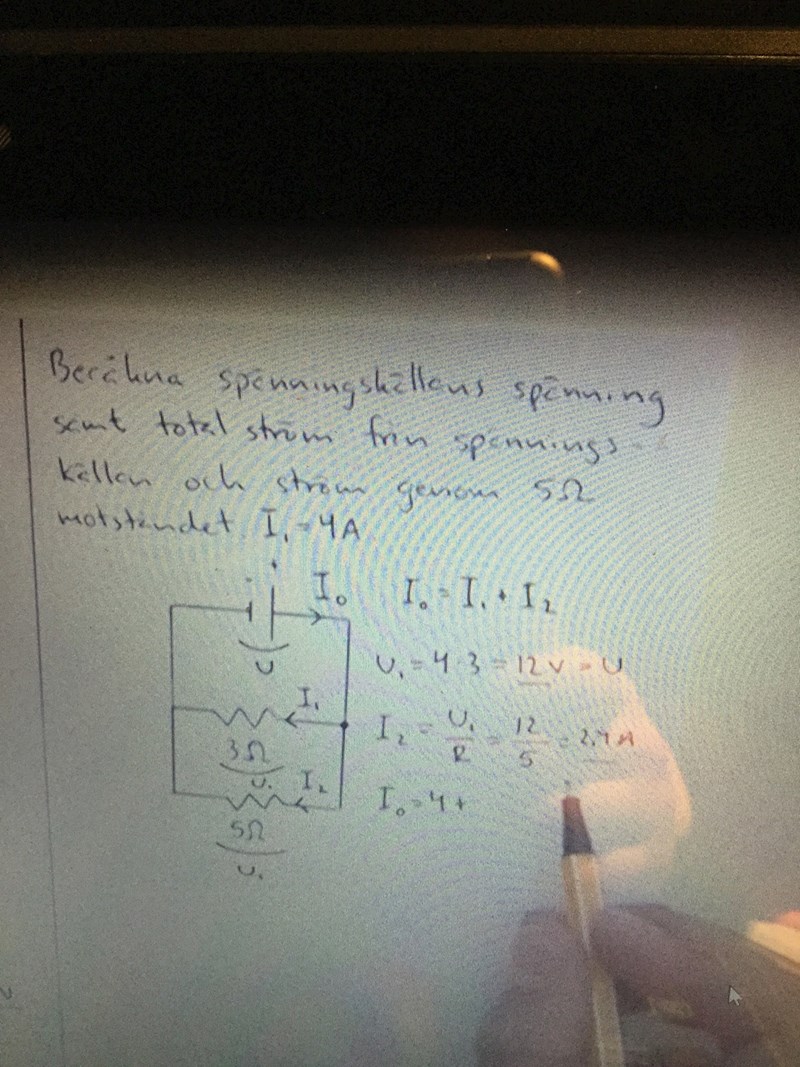 Beräkna spänningskällans spänning
samt total ström från spännings-
källan och ström genom 5Ω
motståndet. I₁ = 4A
I₀ I₀ = I₁ + I₂
U
U₁ = 4·3 = 12V = U
I₁
3Ω
U₁
I₂ = U₁/R = 12/5 = 2,4A
I₂
5Ω
U₁
I₀ = 4 +